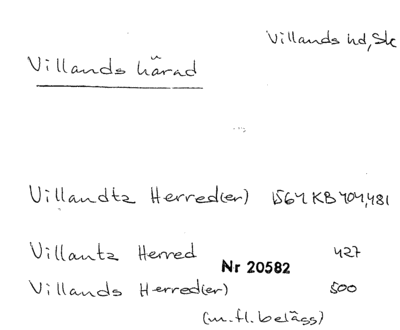 Villands hd, Sk
Villands härad
Villandtz Herred(er) 1564 KB 404, 481
Villantz Herred 427
Nr 20582
Villands Herred(er) 500
(m. fl. belägg)